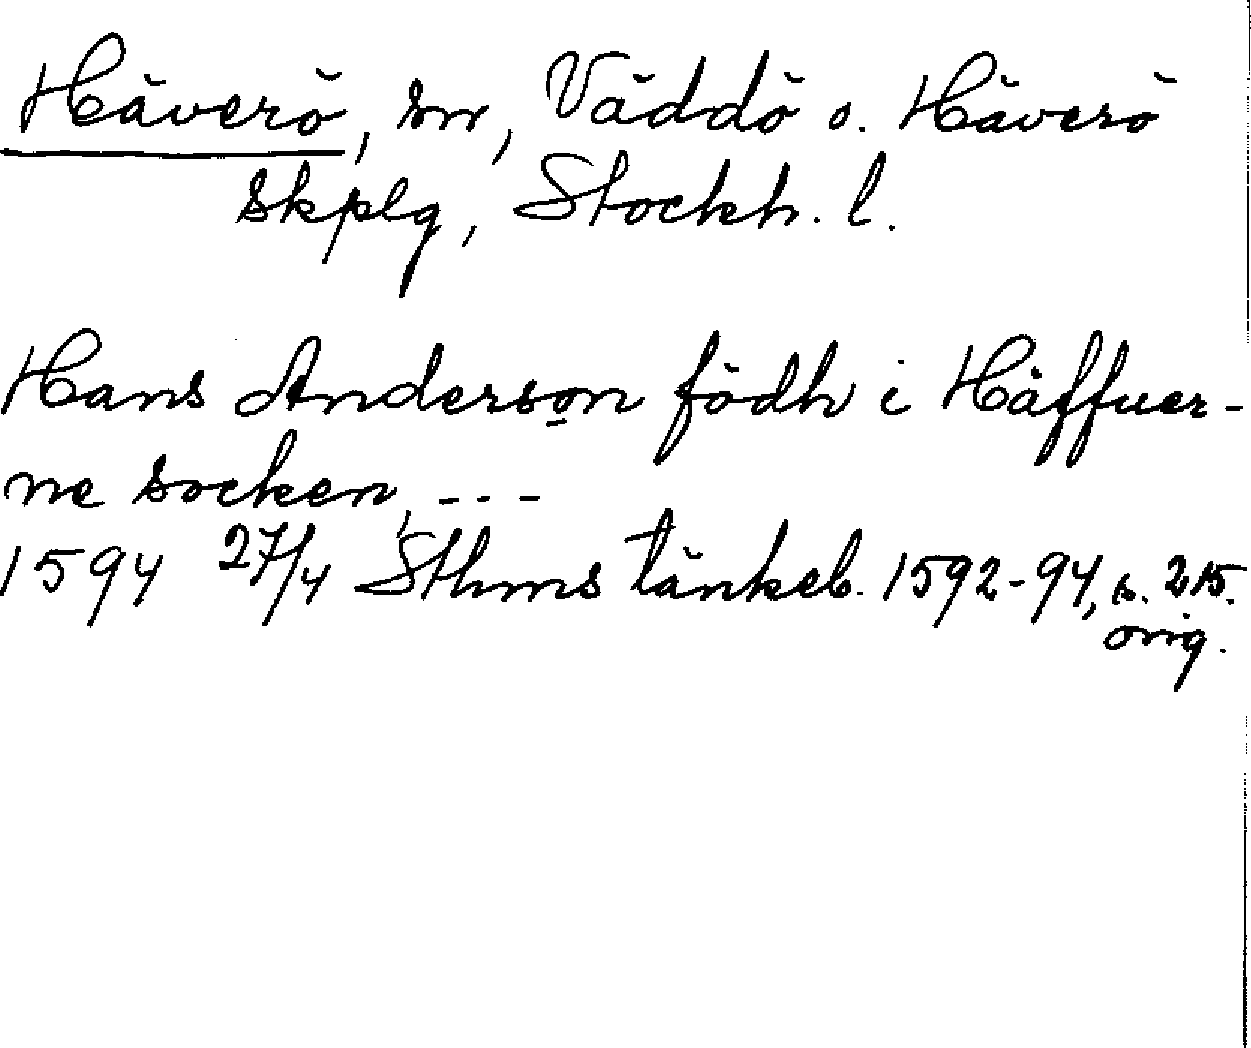 Häverö, sn, Väddö o. Häverö
skplg, Stockh. l.
Hans Anderson födh i Häffuer-
ne socken, ---
1594 27/4 Sthms tänkeb. 1592-94, s. 215.
orig.